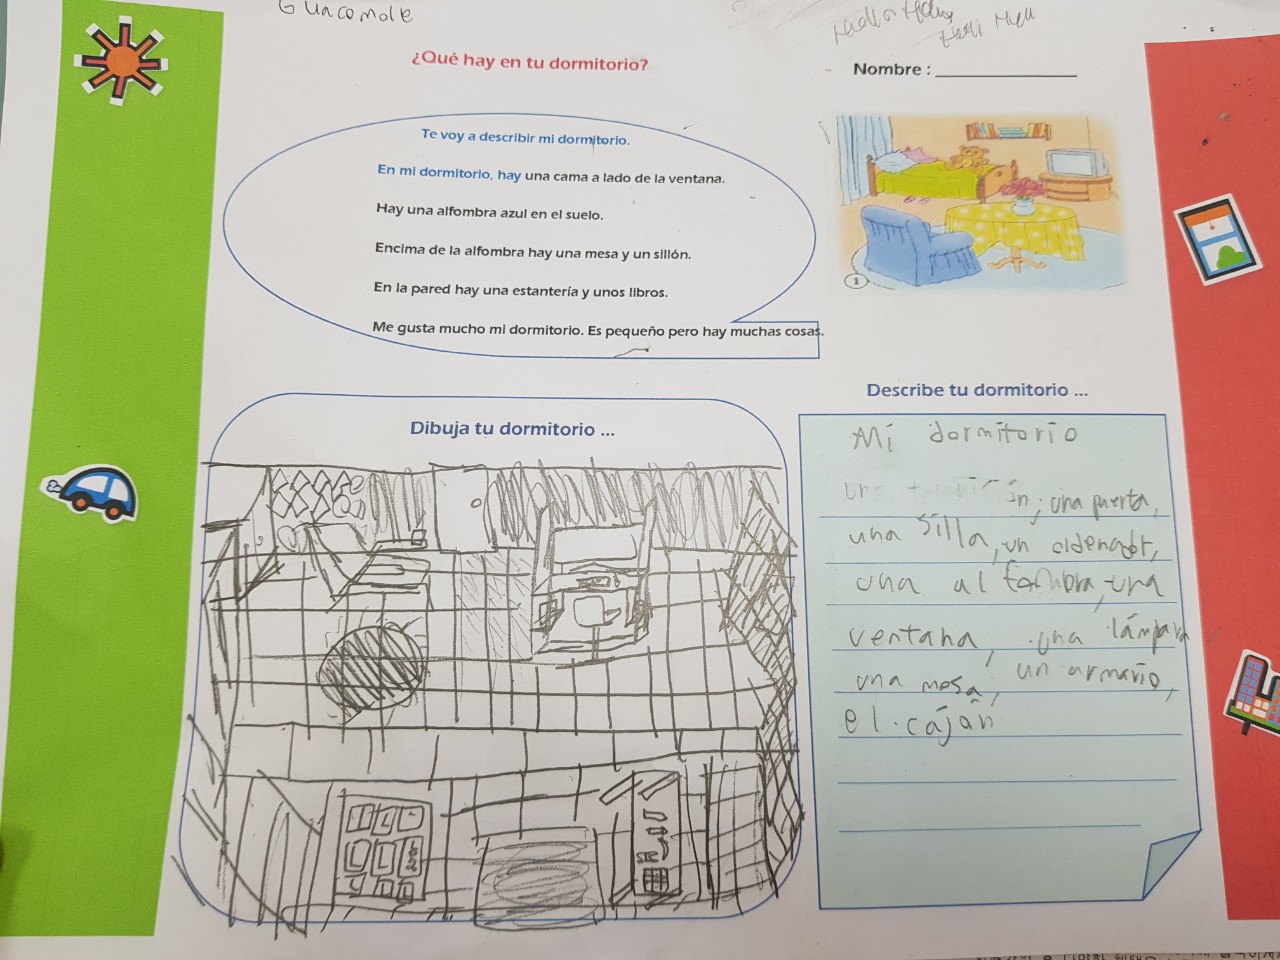 Guacomole
¿Qué hay en tu dormitorio?
Nombre :
Te voy a describir mi dormitorio.
En mi dormitorio, hay una cama a lado de la ventana.
Hay una alfombra azul en el suelo.
Encima de la alfombra hay una mesa y un sillón.
En la pared hay una estantería y unos libros.
Me gusta mucho mi dormitorio. Es pequeño pero hay muchas cosas.
1
Dibuja tu dormitorio ...
Describe tu dormitorio ...
Mi dormitorio
una puerta,
una silla, un ordenador,
una alfombra, una
ventana, una lámpara
una mesa, un armario,
el cajón